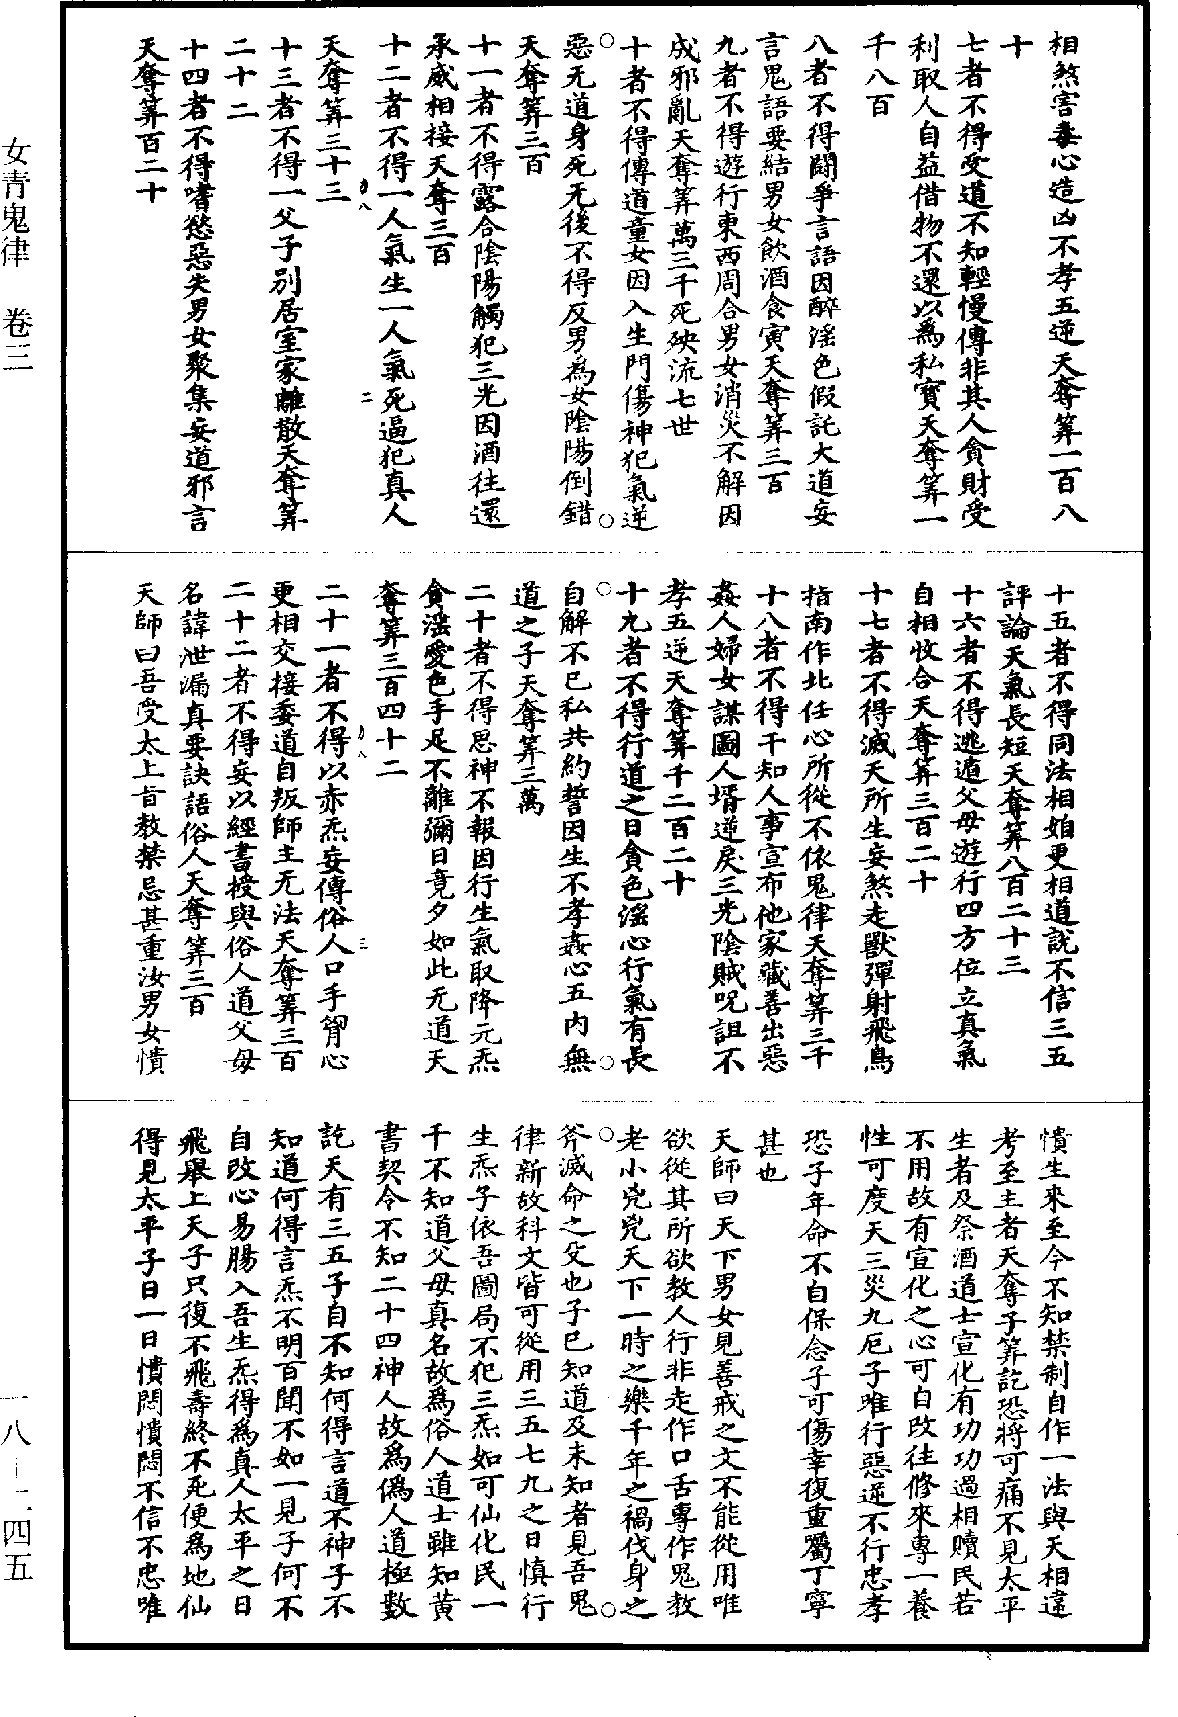 相煞害毒心造凶不孝五逆天奪筭一百八
十
七者不得受道不知輕慢傳非其人貪財受
利取人自益借物不還以為私寶天奪筭一
千八百
八者不得鬪爭言語因醉淫色假託大道妄
言鬼語要結男女飲酒食䝘天奪筭三百
九者不得遊行東西周合男女消災不解因
成邪亂天奪筭萬三千死殃流七世
十者不得傳道童女因入生門傷神犯氣逆
惡无道身死无後不得反男為女陰陽倒錯
天奪筭三百
十一者不得露合陰陽觸犯三光因酒往還
承威相接天奪三百
十二者不得一人氣生一人氣死逼犯真人
天奪筭三十三
十三者不得一父子別居室家離散天奪筭
二十二
十四者不得嗜慾惡失男女聚集妄道邪言
天奪筭百二十
十五者不得同法相妬更相道說不信三五
評論天氣長短天奪筭八百二十三
十六者不得逃遁父母遊行四方位立真氣
自相收合天奪筭三百二十
十七者不得滅天所生妄煞走獸彈射飛鳥
指南作北任心所從不依鬼律天奪筭三千
十八者不得干知人事宣布他家藏善出惡
姦人婦女謀圖人壻逆戾三光陰賊呪詛不
孝五逆天奪筭千二百二十
十九者不得行道之日貪色淫心行氣有長
自解不已私共約誓因生不孝姦心五內無
道之子天奪筭三萬
二十者不得思神不報因行生氣取降元炁
貪淫愛色手足不離彌日竟夕如此无道天
奪筭三百四十二
二十一者不得以赤炁妄傳俗人口手胷心
更相交接委道自叛師主无法天奪筭三百
二十二者不得妄以經書授與俗人道父母
名諱泄漏真要訣語俗人天奪筭三百
天師曰吾受太上旨教禁忌甚重汝男女憒
憒生來至今不知禁制自作一法與天相違
考至主者天奪子筭訖恐將可痛不見太平
生者及祭酒道士宣化有功功過相贖民若
不用故有宣化之心可自改往修來專一養
性可度天三災九厄子唯行惡逆不行忠孝
恐子年命不自保念子可傷幸復重囑丁寧
甚也
天師曰天下男女見善戒之文不能從用唯
欲從其所欲教人行非走作口舌專作鬼教
老小兇兇天下一時之樂千年之禍伐身之
斧滅命之殳也子已知道及未知者見吾鬼
律新故科文皆可從用三五七九之日慎行
生炁子依吾圖局不犯三炁如可仙化民一
千不知道父母真名故為俗人道士雖知黃
書契令不知二十四神人故為僞人道極數
訖天有三五子自不知何得言道不神子不
知道何得言炁不明百聞不如一見子何不
自改心易腸入吾生炁得為真人太平之日
飛舉上天子只復不飛壽終不死便為地仙
得見太平子日一日憒悶憒悶不信不忠唯
女青鬼律 卷三
一八—二四五